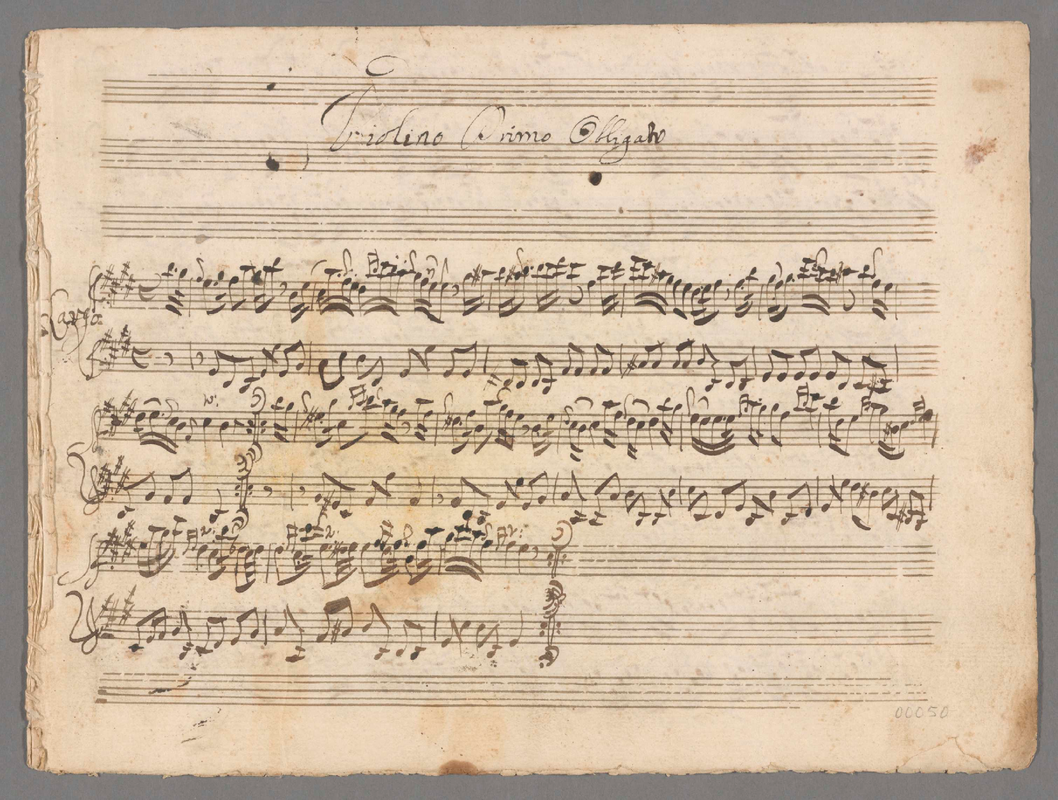 Violino Primo Obligato
00050